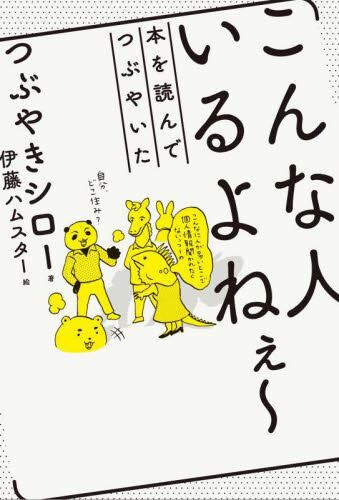 こんな人
いるよねぇ〜
本を読んで
つぶやいた
つぶやきシロー 著
伊藤ハムスター 絵
自分、
どこ住み？
こんなに人が多いとこで
個人情報聞かれたく
ないっつーの